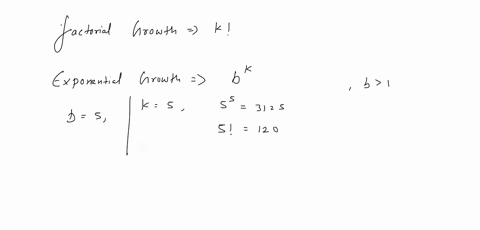 factorial Growth => k!
Exponential Growth => b^k , b > 1
b = 5, k = 5, 5^5 = 3125
5! = 120